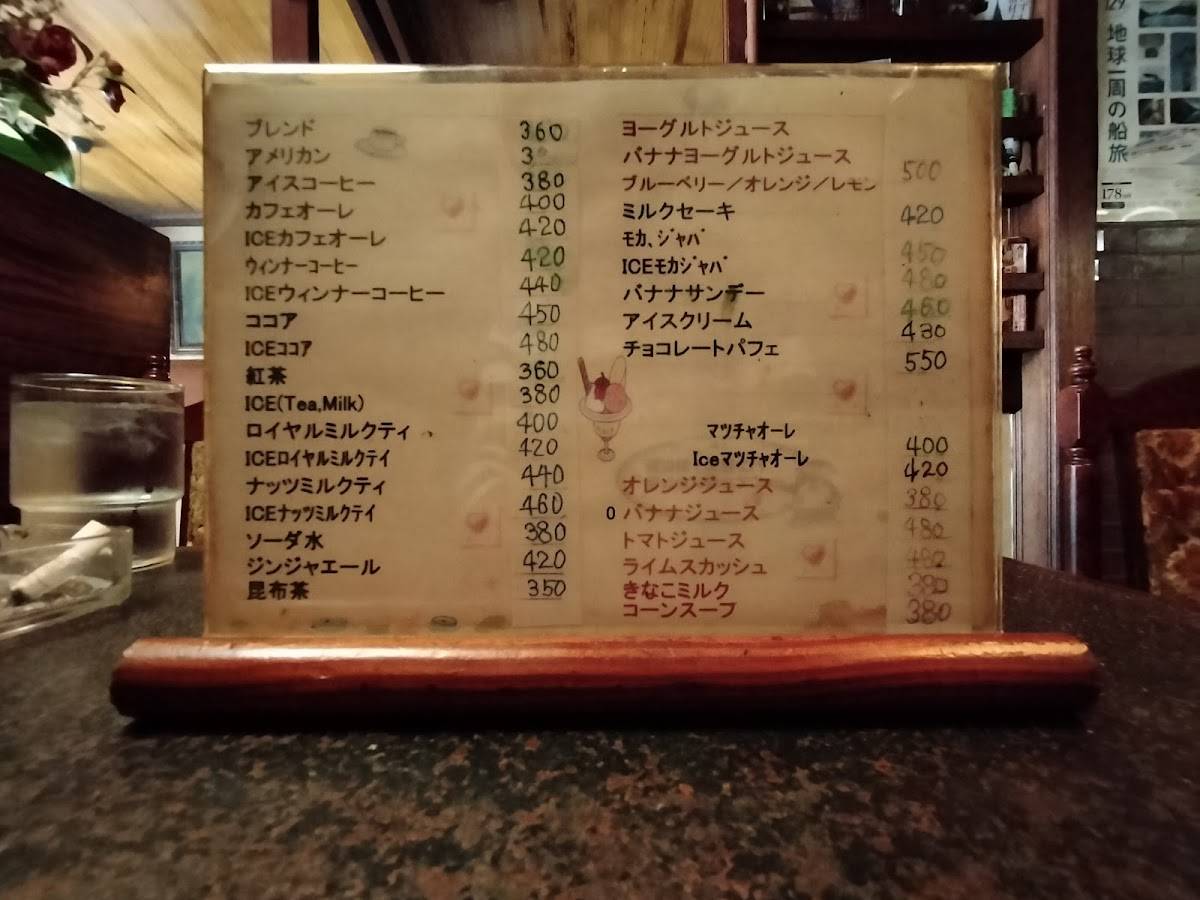 ブレンド 360
アメリカン 3
アイスコーヒー 380
カフェオーレ 400
ICEカフェオーレ 420
ウィンナーコーヒー 420
ICEウィンナーコーヒー 440
ココア 450
ICEココア 480
紅茶 360
ICE(Tea,Milk) 380
ロイヤルミルクティ 400
ICEロイヤルミルクテイ 420
ナッツミルクティ 440
ICEナッツミルクテイ 460
ソーダ水 380
ジンジャエール 420
昆布茶 350
ヨーグルトジュース
バナナヨーグルトジュース 500
ブルーベリー／オレンジ／レモン
ミルクセーキ 420
モカ、ジャバ 450
ICEモカジャバ 480
バナナサンデー 460
アイスクリーム 430
チョコレートパフェ 550
マツチャオーレ 400
Iceマツチャオーレ 420
オレンジジュース 380
0 バナナジュース 480
トマトジュース
ライムスカッシュ
きなこミルク 380
コーンスープ 380
129
地球一周の船旅
178